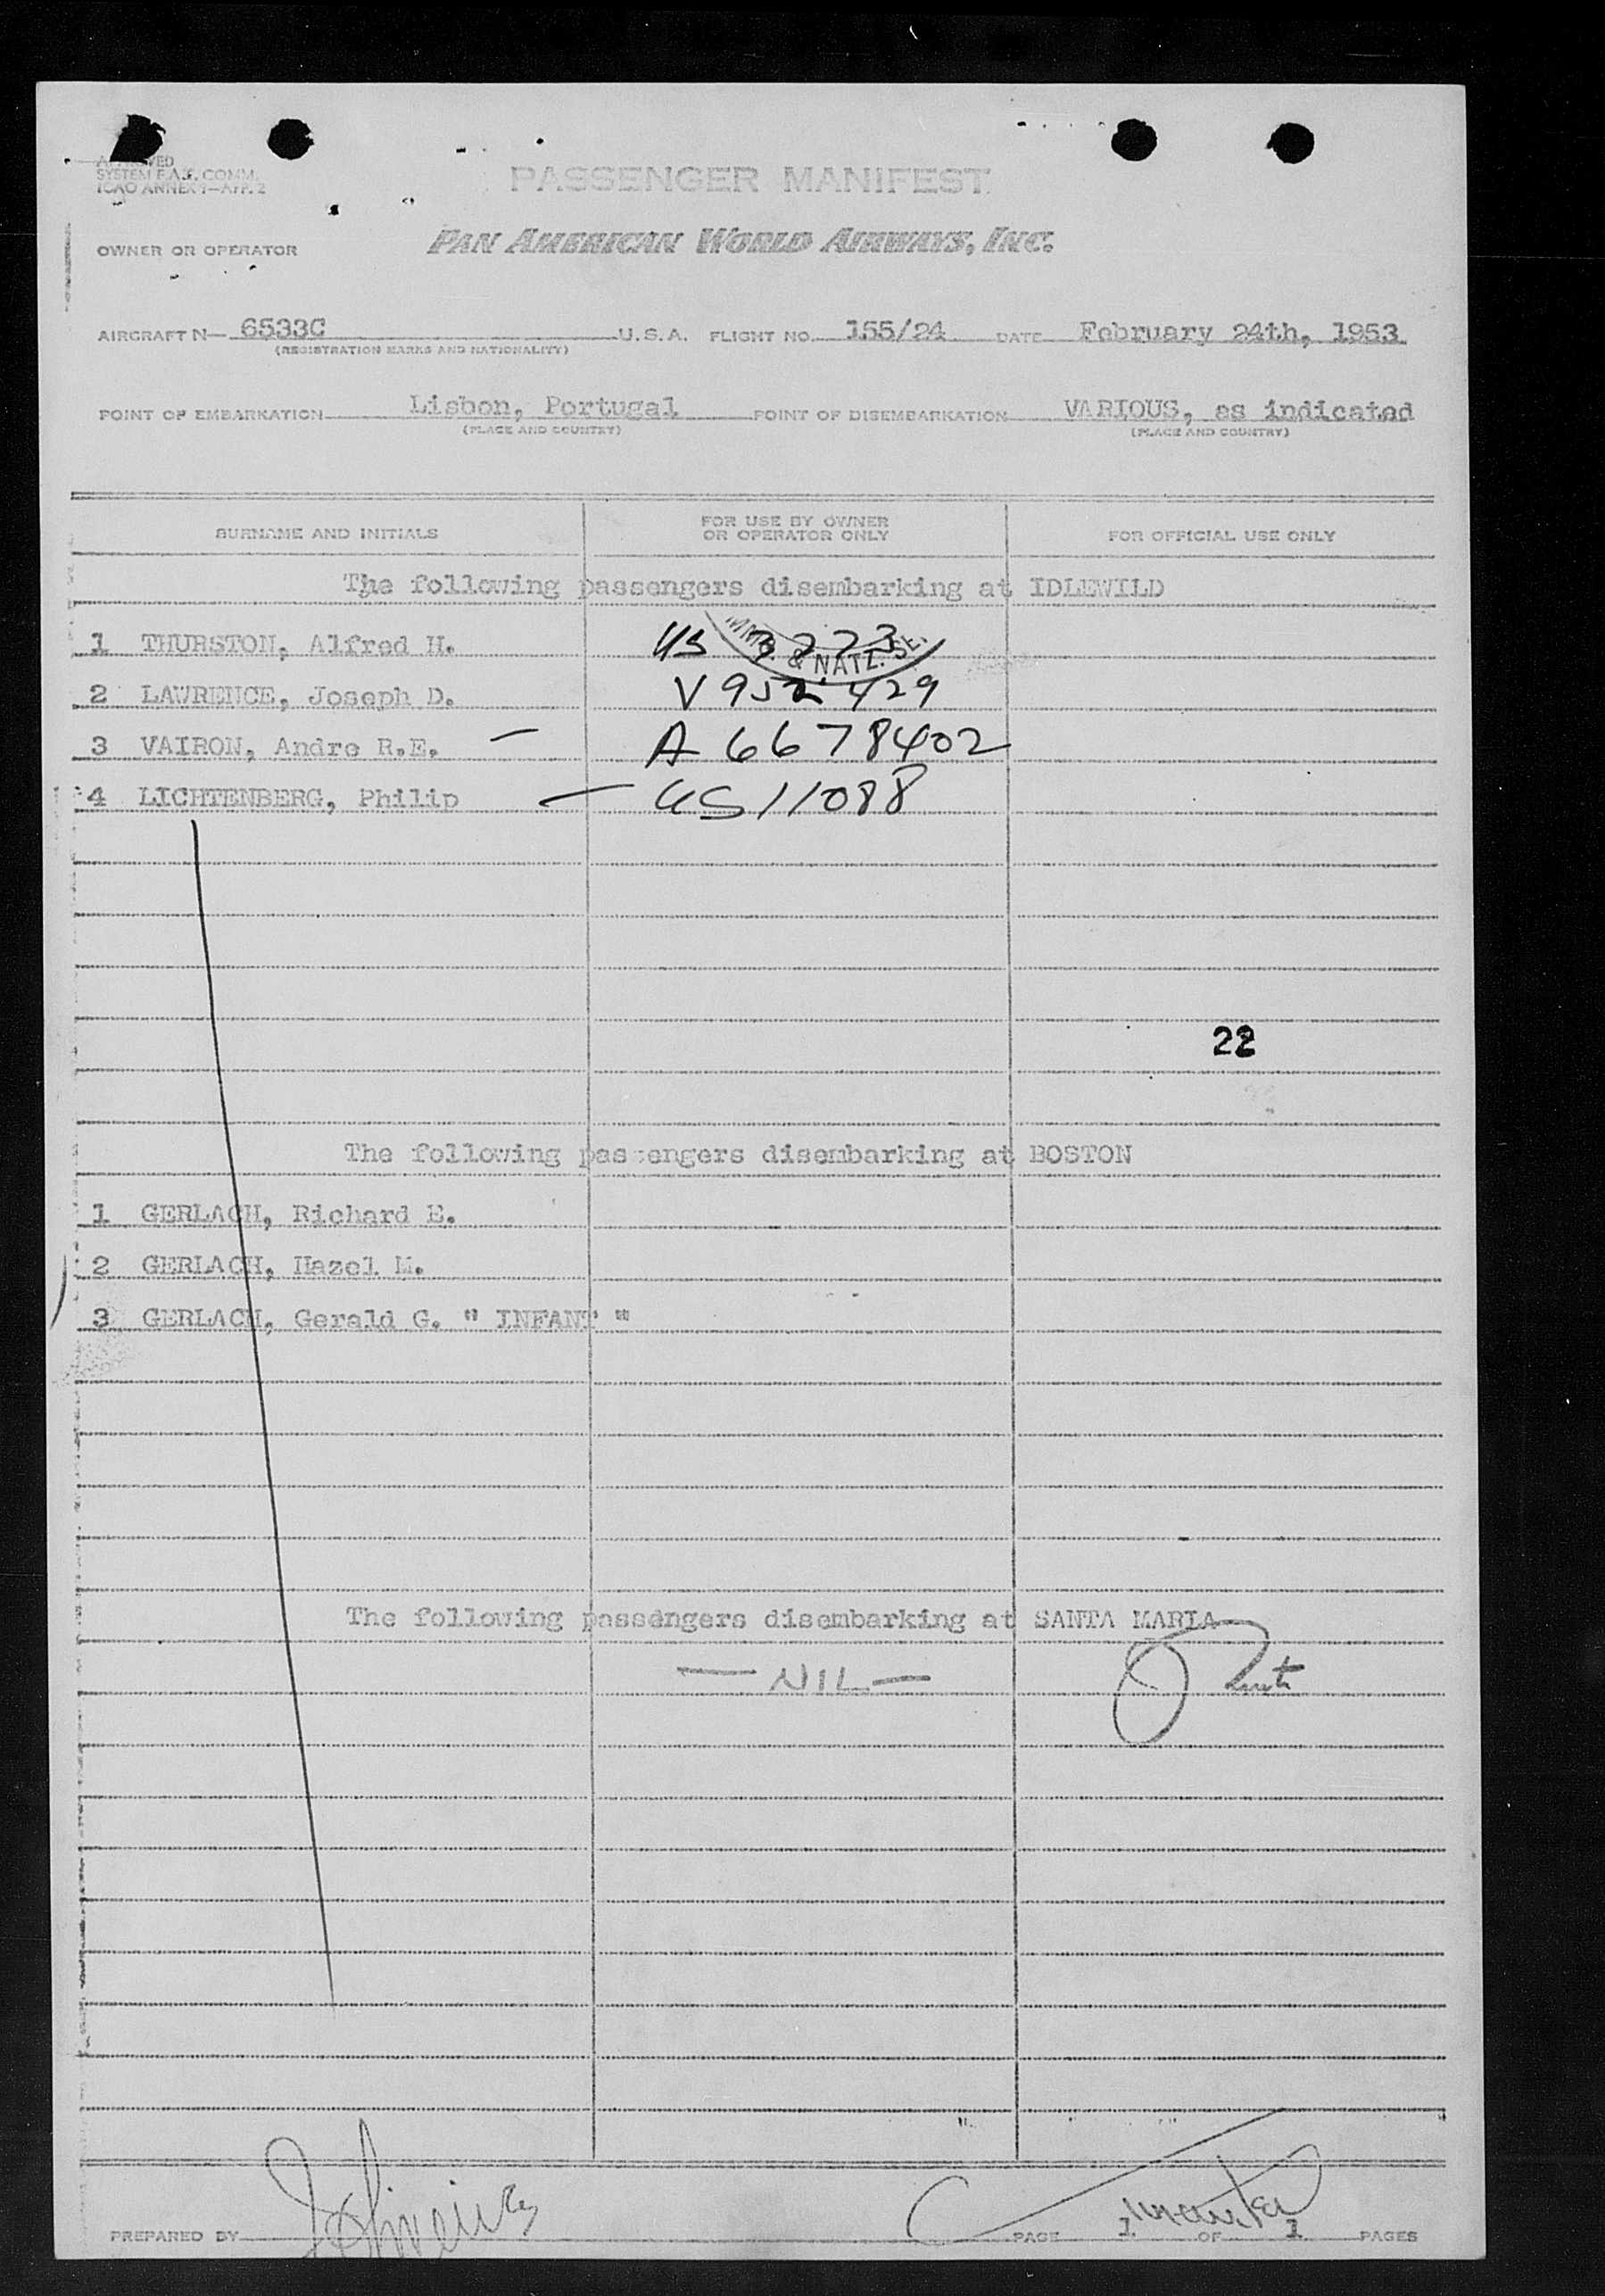 APPROVED
SYSTEM F.A.F. COMM.
ICAO ANNEX 9—APP. 2
PASSENGER MANIFEST
OWNER OR OPERATOR PAN AMERICAN WORLD AIRWAYS, INC.
AIRCRAFT N— 6533C U.S.A. FLIGHT NO. 155/24 DATE February 24th, 1953
(REGISTRATION MARKS AND NATIONALITY)
POINT OF EMBARKATION Lisbon, Portugal POINT OF DISEMBARKATION VARIOUS, as indicated
(PLACE AND COUNTRY) (PLACE AND COUNTRY)
SURNAME AND INITIALS FOR USE BY OWNER OR OPERATOR ONLY FOR OFFICIAL USE ONLY
The following passengers disembarking at IDLEWILD
1 THURSTON, Alfred H. US 3773
& NATZ. SE
2 LAWRENCE, Joseph D. V 952 429
3 VAIRON, Andre R.E. — A 6678402
4 LICHTENBERG, Philip — US 11088
22
The following passengers disembarking at BOSTON
1 GERLACH, Richard E.
2 GERLACH, Hazel M.
3 GERLACH, Gerald G. " INFANT "
The following passengers disembarking at SANTA MARIA
— NIL —
PREPARED BY PAGE 1 OF 1 PAGES